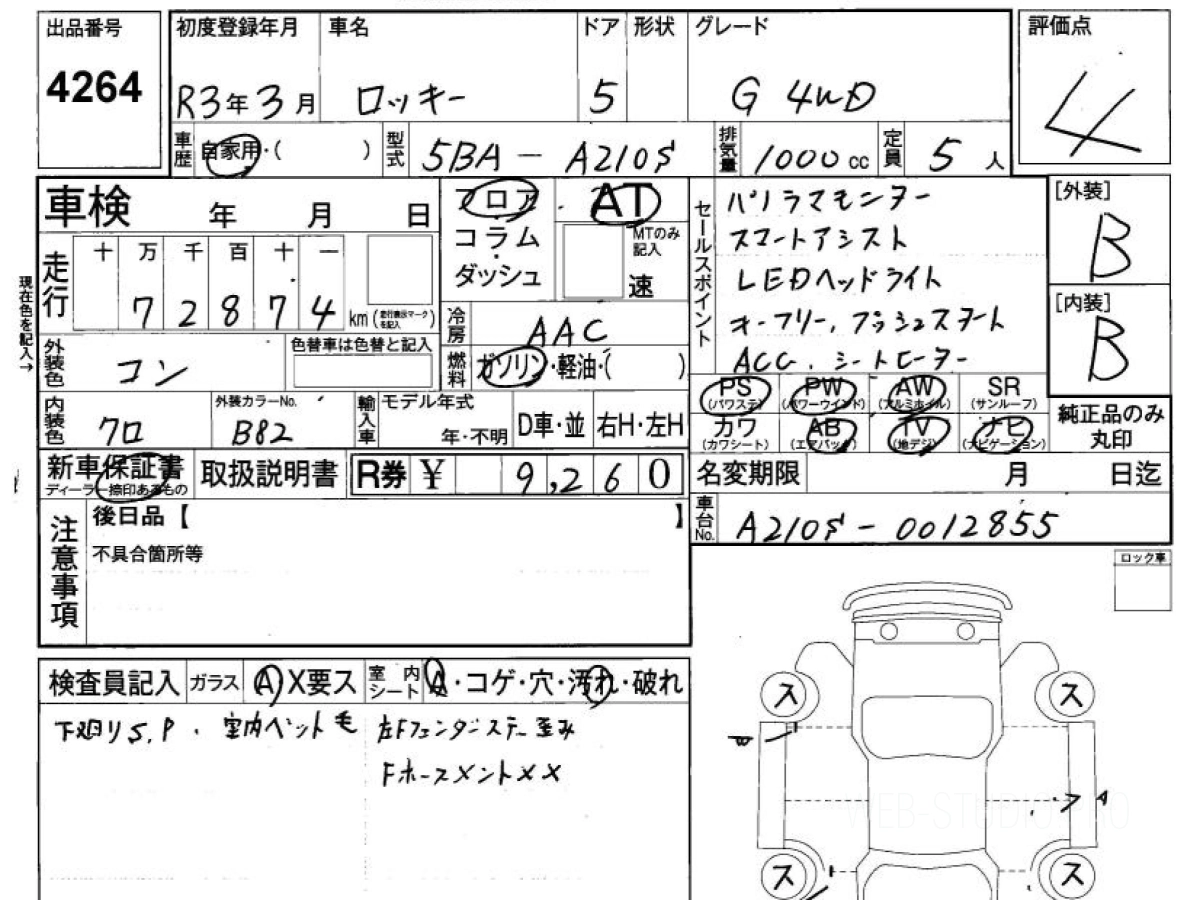 出品番号 初度登録年月 車名 ドア 形状 グレード 評価点
4264 R3年3月 ロッキー 5 G 4WD 4
車歴 自家用・( ) 型式 5BA-A210S 排気量 1000cc 定員 5人
車検 年 月 日 フロア AT セールスポイント パノラマモニター [外装]
コラム・ダッシュ MTのみ記入 速 スマートアシスト B
現在色を記入→ 走行 十 万 千 百 十 一 LEDヘッドライト [内装]
7 2 8 7 4 km (走行表示マークを記入) 冷房 AAC オーフリー、プッシュスタート B
外装色 コン 色替車は色替と記入 燃料 ガソリン・軽油・( ) ACC、シートヒーター
PS (パワステ) PW (パワーウインド) AW (アルミホイル) SR (サンルーフ)
内装色 クロ 外装カラーNo. B82 輸入車 モデル年式 年・不明 D車・並 右H・左H カワ (カワシート) AB (エアバック) TV (地デジ) ナビ (ナビゲーション) 純正品のみ丸印
新車保証書 ディーラー捺印あるもの 取扱説明書 R券 ¥ 9,260 名変期限 月 日迄
注意事項 後日品【 】 車台No. A210S-0012855
不具合箇所等
ロック車
検査員記入 ガラス A X要ス 室内シート A・コゲ・穴・汚れ・破れ
下廻りS,P、室内ペット毛 左Fフェンダーステー歪み
FホースメントXX
ス ス
A
WEB-STUDIO.PRO
ス ス